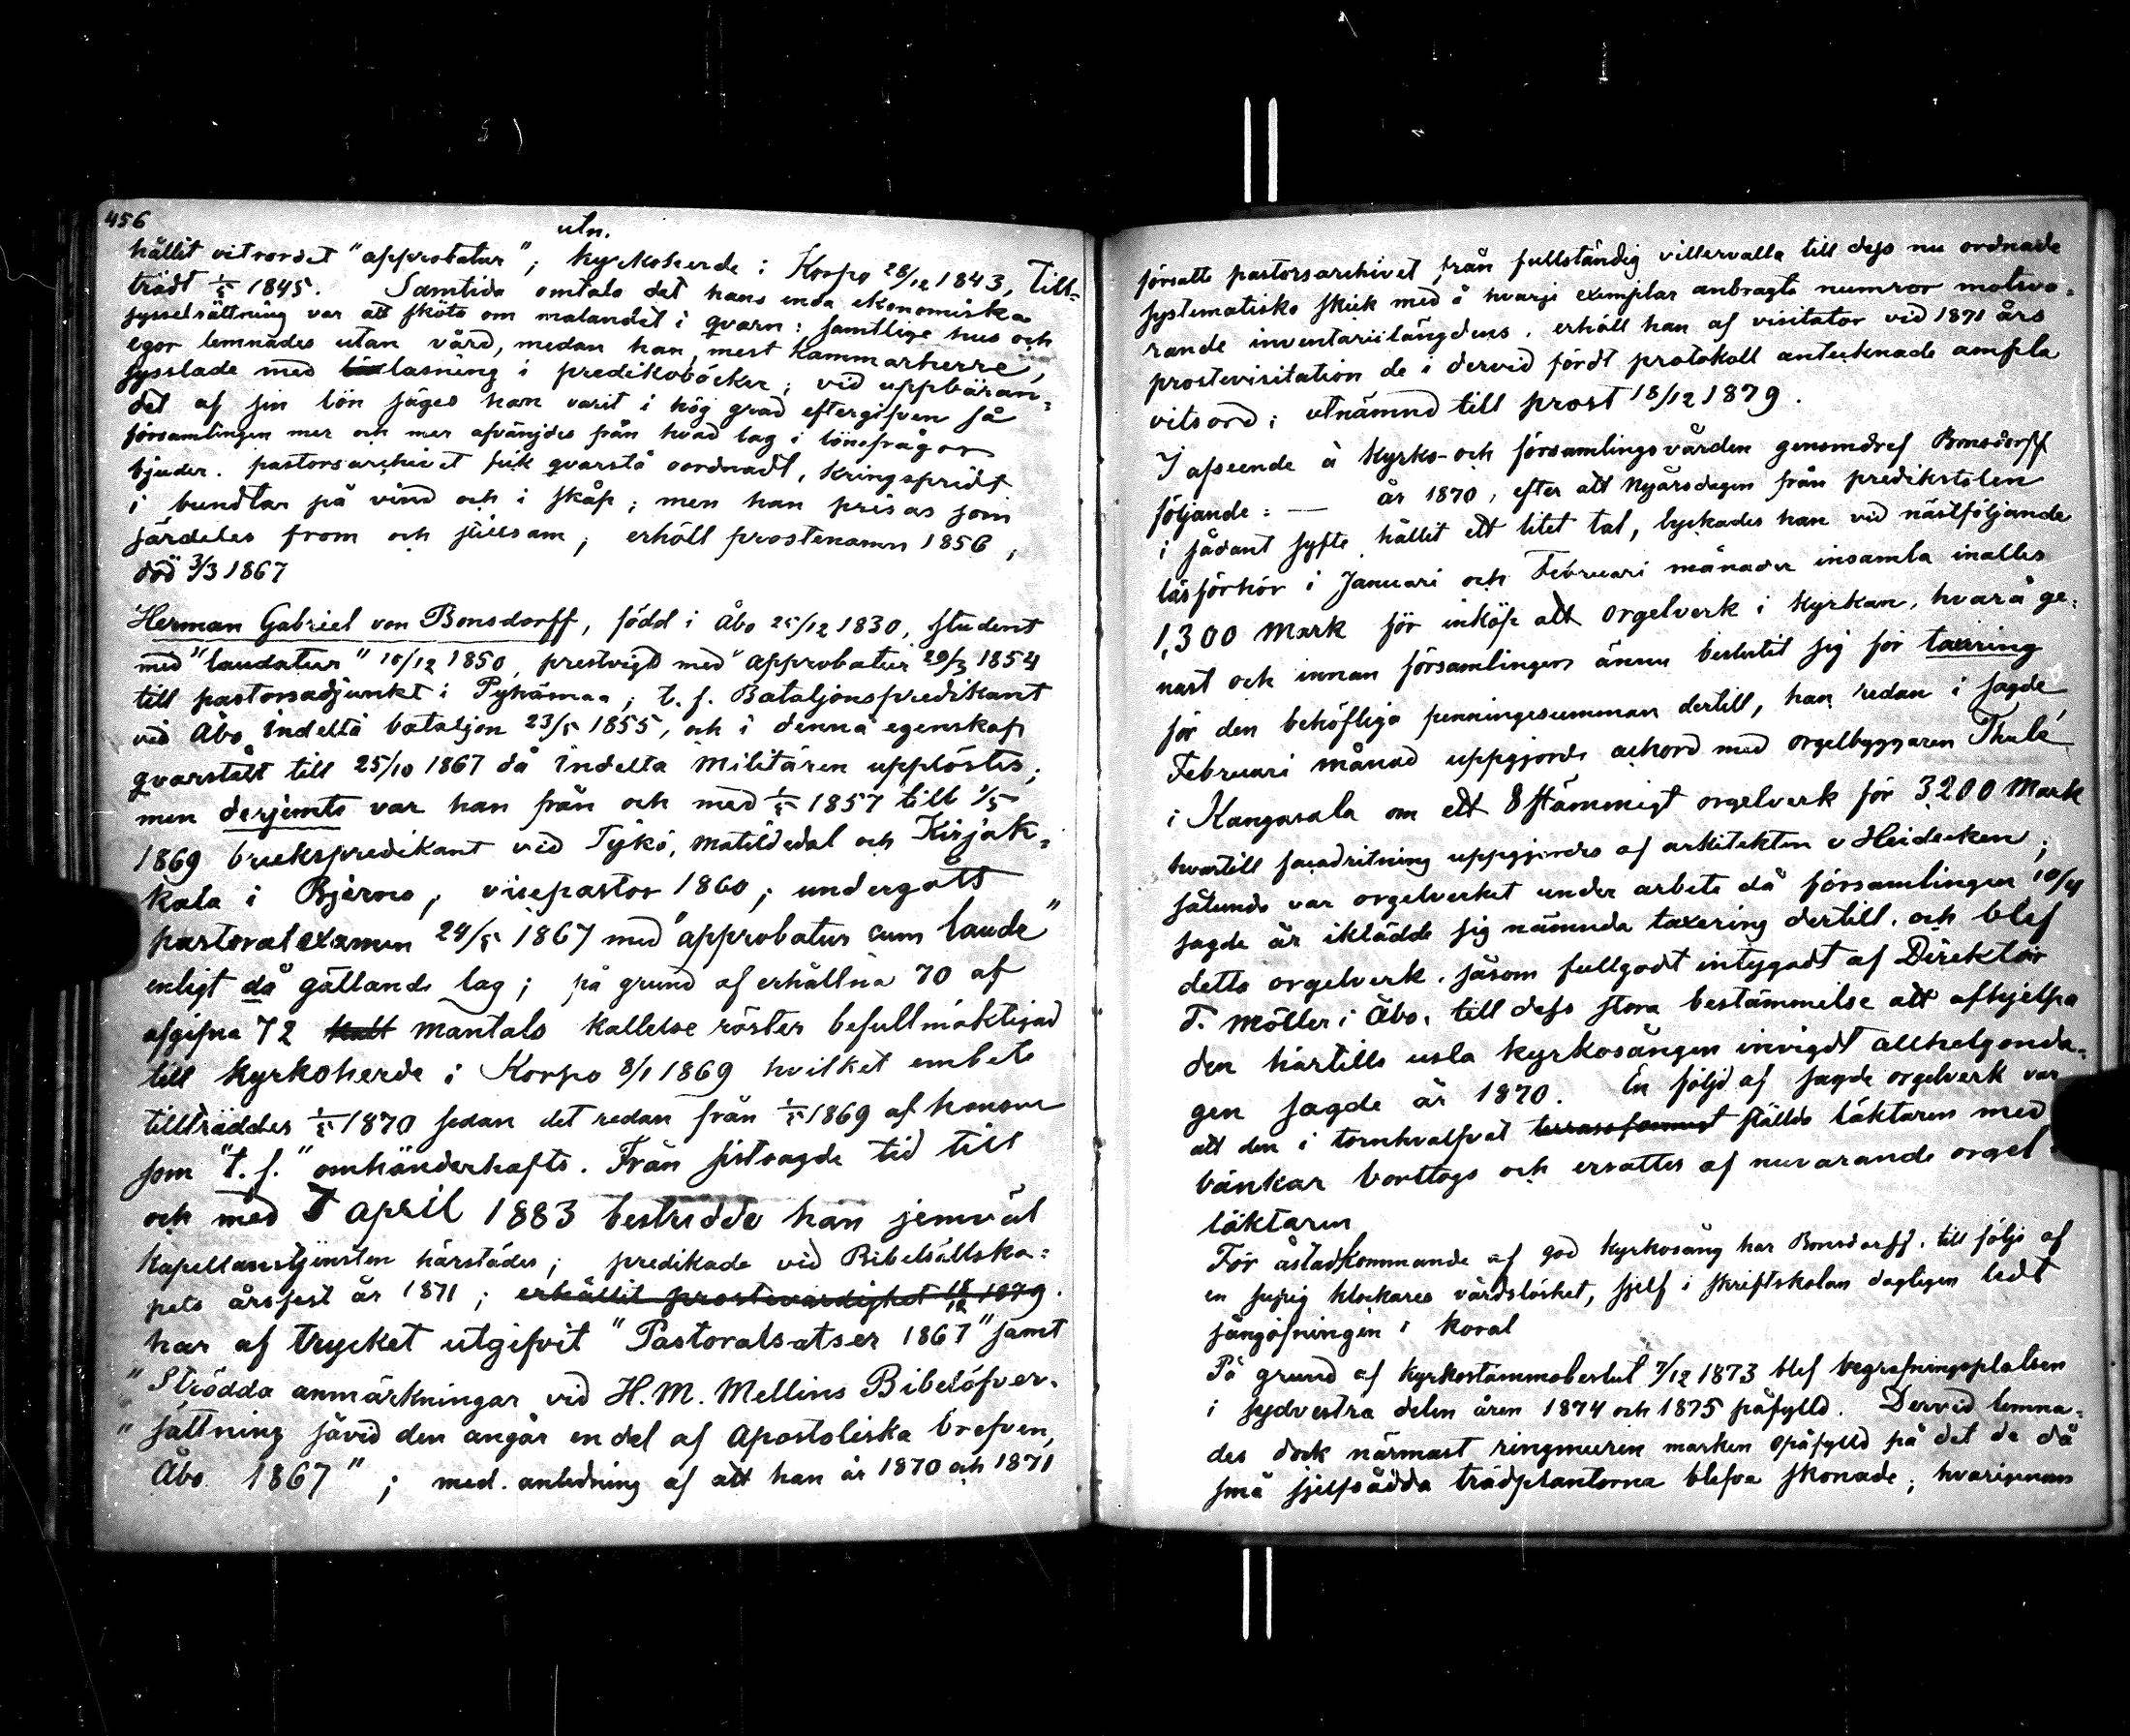 456
utn.
hållit vitsordet "approbatur"; kyrkoherde i Korpo 28/12 1843, till=
trädt 1/5 1845. Samtida omtala det hans enda ekonomiska
sysselsättning var att sköta om malandet i qvarn: samtlige hus och
egor lemnades utan vård, medan han, mest kammarherre,
sysslade med läsning i predikoböcker; vid uppbäran=
det af sin lön säges han varit i hög grad eftergifven så
församlingen mer och mer afvänjdes från hvad lag i lönefrågor
bjuder. pastorsarchivet fick qvarstå oordnadt, kringspridt
i bundtar på vind och i skåp; men han prisas som
särdeles from och stillsam; erhöll prostenamn 1856;
död 3/3 1867
Herman Gabriel von Bonsdorff, född i Åbo 25/12 1830, student
med "laudatur" 10/12 1850, prestvigd med "approbatur 29/3 1854
till pastorsadjunkt i Pyhämaa; t. f. Bataljonspredikant
vid Åbo indelta bataljon 23/5 1855, och i denna egenskap
qvarstått till 25/10 1867 då indelta militären upplöstes;
men derjemte var han från och med 1/5 1857 till 1/5
1869 brukspredikant vid Tykö, Matildedal och Kirjak=
kala i Bjerno, vicepastor 1860; undergått
pastoralexamen 24/5 1867 med "approbatur cum laude"
enligt då gällande lag; på grund af erhållna 70 af
afgifna 72 kall mantals kallelse röster befullmäktigad
till kyrkoherde i Korpo 8/1 1869 hvilket embete
tillträddes 1/5 1870 sedan det redan från 1/5 1869 af honom
som "t. f." omhänderhafts. Från sistsagde tid till
och med 7 april 1883 bestridde han jemväl
kapellanstjensten härstädes; predikade vid Bibelsällska=
pets årsfest år 1871; erhållit prostevärdighet 18/12 1879.
har af trycket utgifvit "Pastoralsatser 1867" samt
"Strödda anmärkningar vid H. M. Mellins Bibelöfver=
"sättning såvid den angår en del af Apostoliska brefven,
Åbo 1867"; med anledning af att han år 1870 och 1871
försatte pastorsarchivet från fullständig villervalla till dess nu ordnade
systematiska skick med å hvarje exemplar anbragta numror motsva=
rande inventariilängdens, erhöll han af visitator vid 1871 års
prostevisitation de i dervid fördt protokoll antecknade ampla
vitsord; utnämnd till prost 18/12 1879.
I afseende å kyrko- och församlingsvården genomdref Bonsdorff
följande: — år 1870, efter att Nyårsdagen från predikstolen
i sådant syfte hållit ett litet tal, lyckades han vid nästföljande
läsförhör i Januari och Februari månader insamla inalles
1,300 mark för inköp att orgelverk i kyrkan, hvarå ge=
nast och innan församlingen ännu beslutit sig för taxering
för den behöfliga penningesumman dertill, han redan i sagde
Februari månad uppgjorde ackord med orgelbyggaren Thulé
i Kangasala om ett 8 stämmigt orgelverk för 3200 Mark
hvartill facadritning uppgjordes af arkitekten v Heideken;
sålunda var orgelverket under arbete då församlingen 10/4
sagde år iklädde sig nämnda taxering dertill, och blef
detta orgelverk, såsom fullgodt intygadt af Direktör
F. Möller i Åbo, till dess stora bestämmelse att afhjelpa
den härtills usla kyrkosången invigdt allhelgonda=
gen sagde år 1870. En följd af sagde orgelverk var
att den i tornhvalfvet terrassformigt ställda läktaren med
bänkar borttogs och ersattes af nuvarande orgel
läktaren
För åstadkommande af god kyrkosång har Bonsdorff, till följe af
en klockares vårdslöshet, sjelf i skriftskolan dagligen ledt
sångöfningen i koral
På grund af kyrkostämmobeslut 7/12 1873 blef begrafningsplatsen
i sydvestra delen åren 1874 och 1875 påfylld. Dervid lemna=
des dock närmast ringmuren marken opåfylld på det de då
små sjelfsådda trädplantorna blefve skonade; hvarigenom